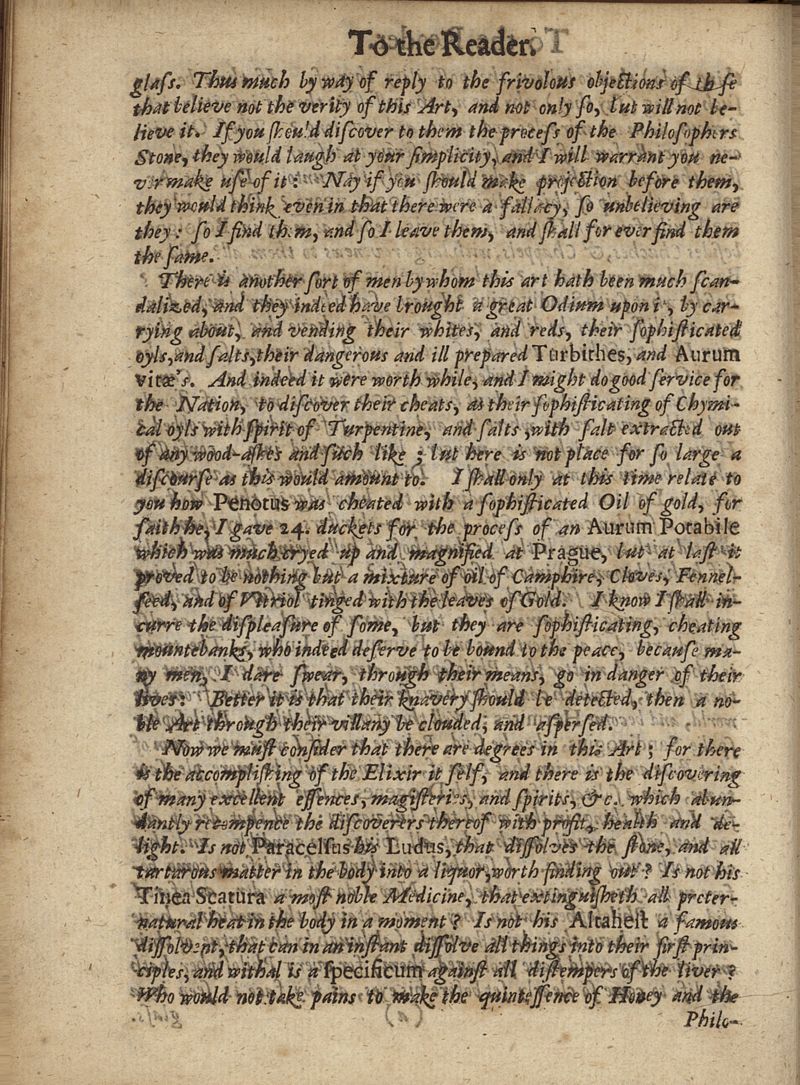 To the Reader.
glaſs. Thus much by way of reply to the frivolous objections of thſe
that believe not the verity of this Art, and not only ſo, but will not be-
lieve it. If you ſhould diſcover to them the proceſs of the Philoſophers
Stone, they would laugh at your ſimplicity, and I will warrant you ne-
ver make uſe of it: Nay if you ſhould make projection before them,
they would think even in that there were a fallacy, ſo unbelieving are
they: ſo I find them, and ſo I leave them, and ſhall for ever find them
the ſame.
There is another ſort of men by whom this art hath been much ſcan-
dalized, and they indeed have brought a great Odium upon i, by car-
rying about, and vending their whites, and reds, their ſophiſticated
oyls, and ſalts, their dangerous and ill prepared Turbithes, and Aurum
vitæ's. And indeed it were worth while, and I might do good ſervice for
the Nation, to diſcover their cheats, as their ſophiſticating of Chymi-
cal oyls with ſpirit of Turpentine, and ſalts, with ſalt extracted out
of any wood-aſhes and ſuch like; but here is not place for ſo large a
diſcourſe as this would amount to. I ſhall only at this time relate to
you how Penotus was cheated with a ſophiſticated Oil of gold, for
ſaith he, I gave 24. duckets for the proceſs of an Aurum Potabile
which was much cryed up and magnified at Prague, but at laſt it
proved to be nothing but a mixture of oil of Camphire, Cloves, Fennel-
ſeed, and of Vitriol tinged with the leaves of Gold. I know I ſhall in-
curre the diſpleaſure of ſome, but they are ſophiſticating, cheating
mountebanks, who indeed deſerve to be bound to the peace, becauſe ma-
ny men, I dare ſwear, through their means, go in danger of their
lives: Better it is that their knavery ſhould be detected, then a no-
ble Art through their villany be clouded, and aſperſed.
Now we muſt conſider that there are degrees in this Art; for there
is the accompliſhing of the Elixir it ſelf, and there is the diſcovering
of many excellent eſſences, magiſteries, and ſpirits, &c. which abun-
dantly recompence the diſcoverers thereof with profit, health and de-
light. Is not Paracelſus his Ludus, that diſſolves the ſtone, and all
tartarous matter in the body into a liquor, worth finding out? Is not his
Tinea Scatura a moſt noble Medicine, that extinguiſheth all preter-
natural heat in the body in a moment? Is not his Altaheſt a famous
diſſolvent, that can in an inſtant diſſolve all things into their firſt prin-
ciples, and withal is a ſpecificum againſt all diſtempers of the liver?
Who would not take pains to make the quinteſſence of Honey and the
Philo-